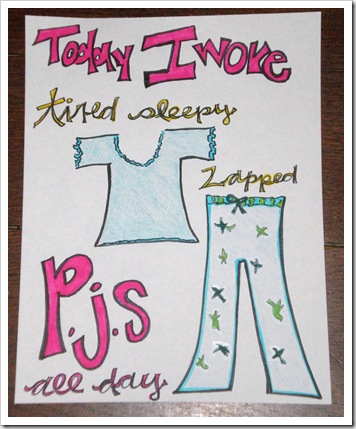 Today I wore
tired sleepy
Zapped
P.j.s
all day.